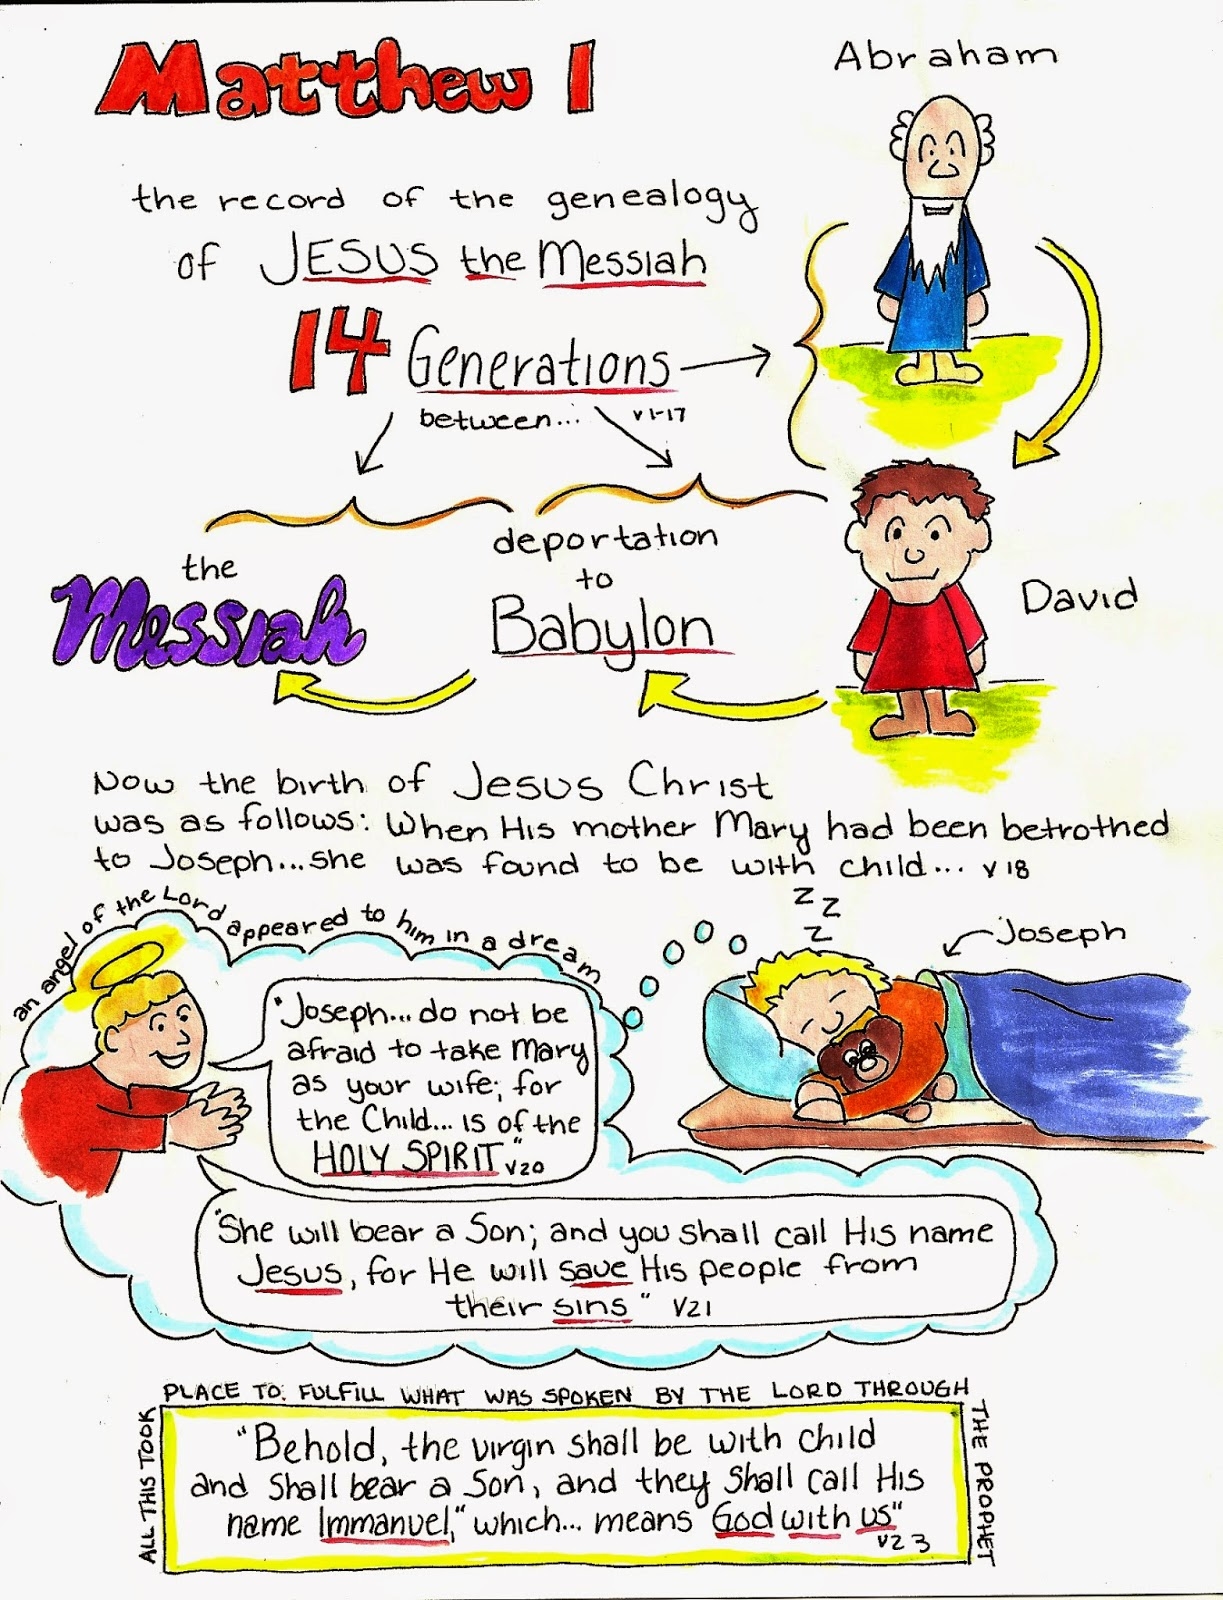 Matthew 1
Abraham
the record of the genealogy
of JESUS the Messiah
14 Generations
between... v1-17
the
Messiah
deportation
to
Babylon
David
Now the birth of Jesus Christ
was as follows: When His mother Mary had been betrothed
to Joseph...she was found to be with child... v 18
an angel of the Lord appeared to him in a dream
z z
z
Joseph
"Joseph... do not be
afraid to take Mary
as your wife; for
the Child... is of the
HOLY SPIRIT" v20
"She will bear a Son; and you shall call His name
Jesus, for He will save His people from
their sins" v21
ALL THIS TOOK
PLACE TO FULFILL WHAT WAS SPOKEN BY THE LORD THROUGH
THE PROPHET
"Behold, the virgin shall be with child
and shall bear a Son, and they shall call His
name Immanuel," which... means "God with us"
v23